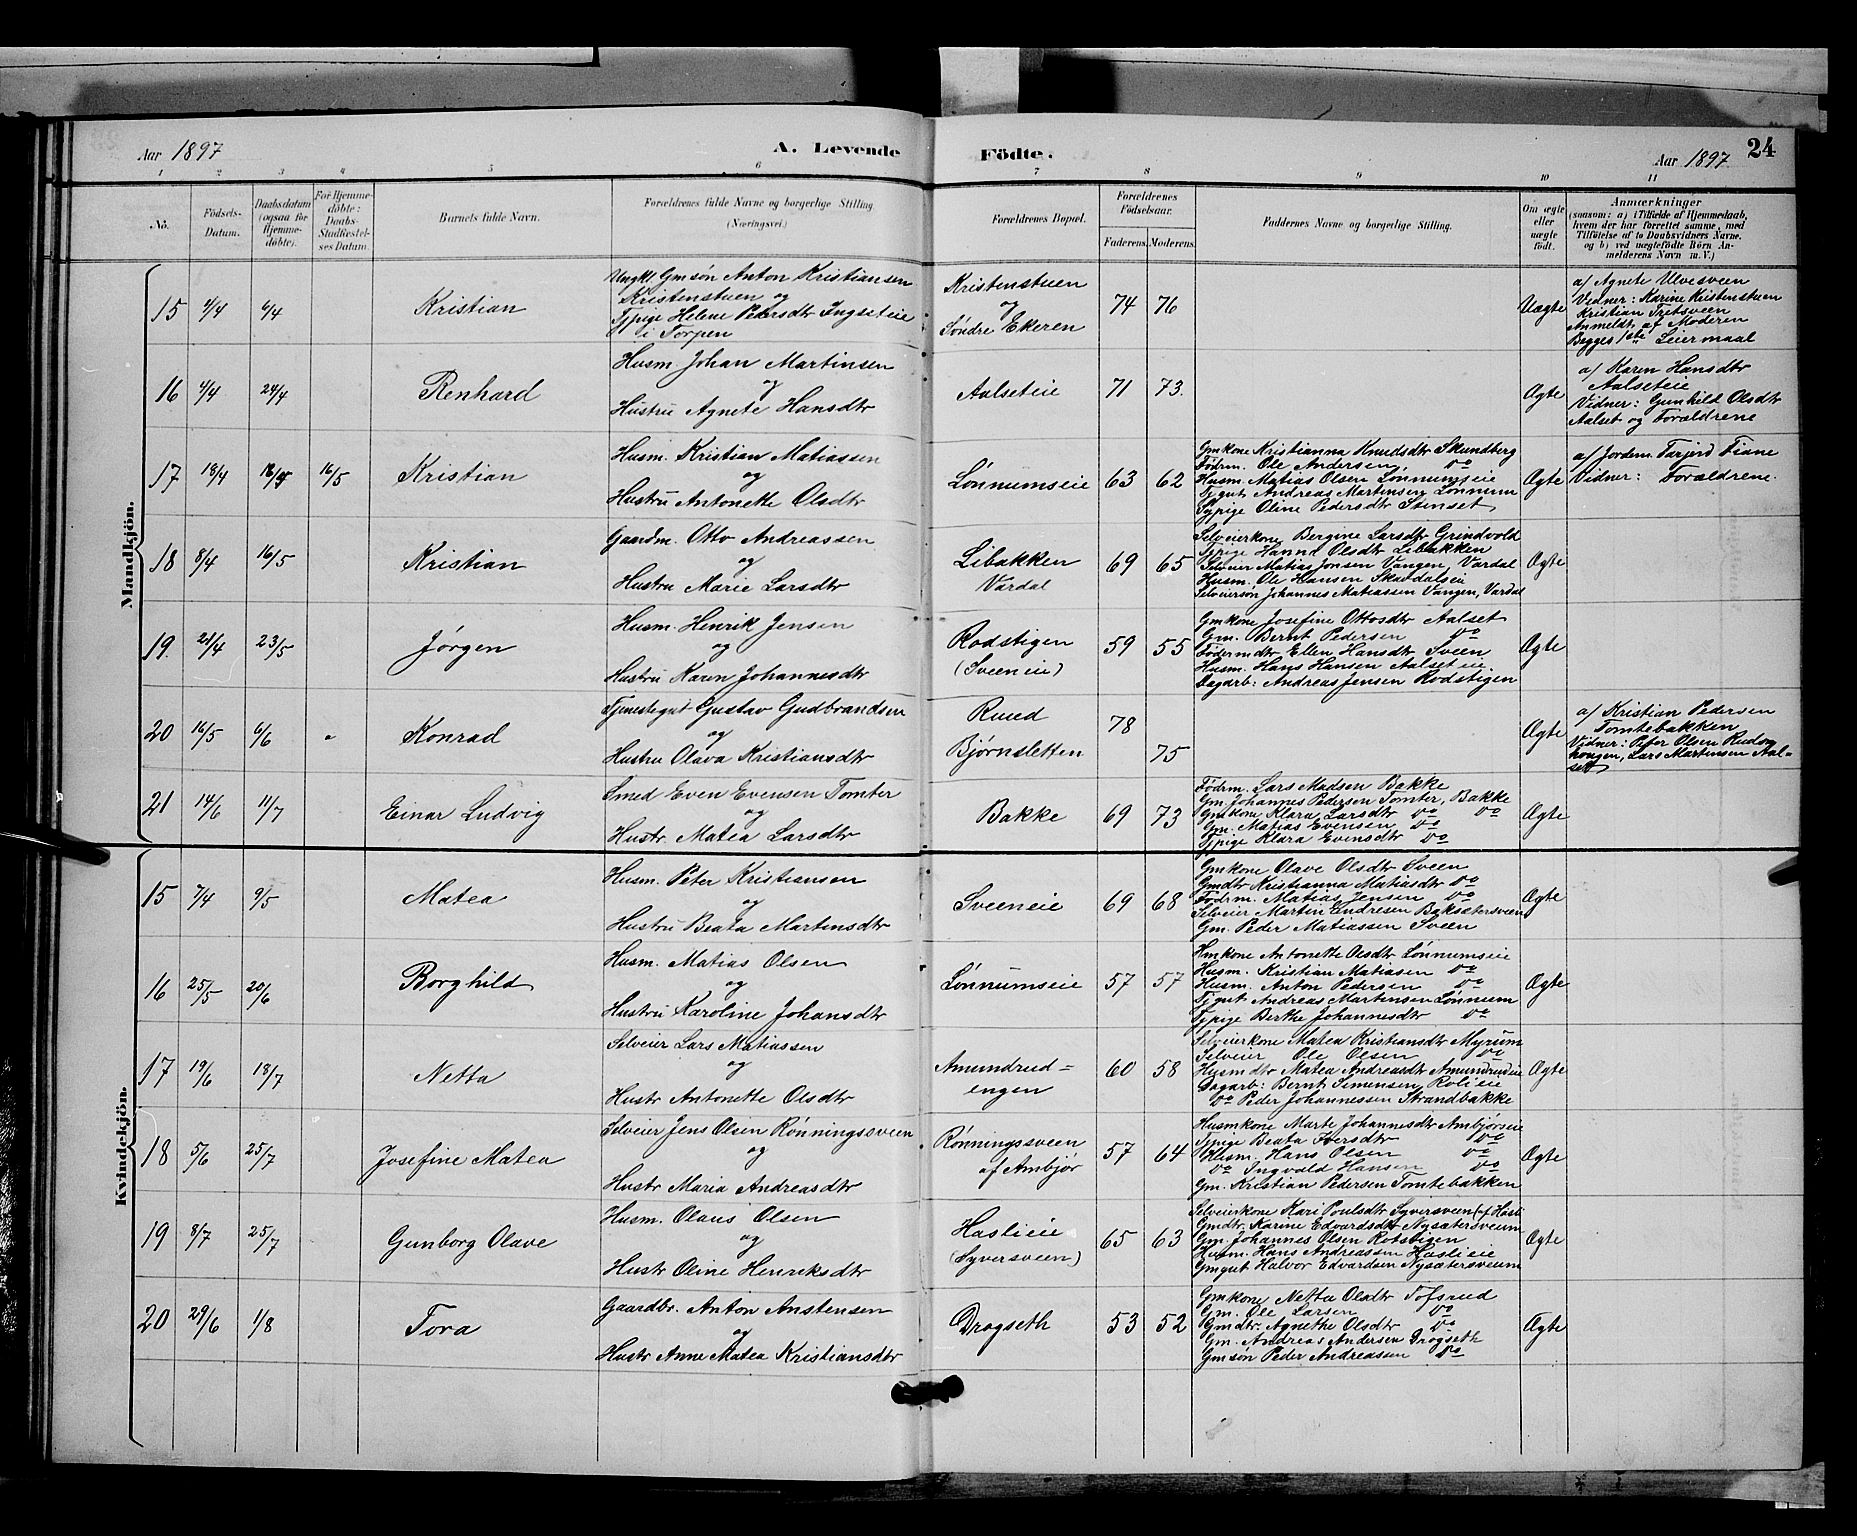 Aar 1897
A. Levende
Födte.
Aar 1897
24
1 2 3 4 5 6 7 8 9 10 11
No.
Födsels-Datum.
Daabsdatum (ogsaa for Hjemme-döbte).
For Hjemme-döbte: Daabs-Stadfæstel-ses Datum.
Barnets fulde Navn.
Forældrenes fulde Navne og borgerlige Stilling. (Næringsvei.)
Forældrenes Bopæl.
Forældrenes Födselsaar.
Faderens. Moderens.
Faddernes Navne og borgerlige Stilling.
Om ægte eller uægte födt.
Anmærkninger
(saasom: a) i Tilfælde af Hjemmedaab,
hvem der har forrettet samme, med
Tilföielse af to Daabsvidners Navne,
og b) ved uægtefödte Börn An-
melderens Navn m. V.)
Mandkjön.
15 4/4 Kristian
Ungkl. Gmsön Anton Kristiansen
Kristenstuen og
Tjpige Helene Pedersdtr Ingseteie
i Torpen
Kristenstuen
og
Søndre Ekeren
74 76
Uægte
a/ Agnete Ulvesveen
Vidner: Karine Kristenstuen
Kristian Tretsveen
Anmeldt af Moderen
Begges 1ste Leiermaal
16 4/4 24/4 Renhard
Husm. Johan Martinsen
og
Hustru Agnete Hansdtr
Aalseteie
71 73.
Ægte
a/ Karen Hansdtr
Aalseteie
Vidner: Gunhild Olsdtr
Aalset og Forældrene
17 18/4 16/5 Kristian
Husm. Kristian Matiassen
og
Hustru Antonette Olsdtr
Lønnumseie
63 62
Gmkone Kristianna Knudsdtr Skundberg
Födrm. Ole Andersen do
Husm. Matias Olsen Lønnumseie
Tjgut Andreas Martinsen Lønnum
Tjpige Oline Pedersdtr Stenset
Ægte
a/ Jordm. Tarjerd Fiane
Vidner: Forældrene.
18 8/4 16/5 Kristian
Gaardm. Otto Andreassen
og
Hustru Marie Larsdtr
Libakken
Vardal
69 65
Selveierkone Bergine Larsdtr Grindvold
Tjpige Hanna Olsdtr Libakken
Selveier Matias Jonsen Vangen, Vardal
Husm. Ole Hansen
Selveiersön Johannes Matiassen Vangen, Vardal
Ægte
19. 21/4 23/5 Jørgen
Husm. Henrik Jensen
og
Hustru Karen Johannesdtr
Rodstigen
(Sveeneie)
59 55
Gmkone Josefine Ottosdtr Aalset
Gm. Bernt Pedersen do
Föderaadsdtr Ellen Hansdtr Sveen
Husm. Hans Hansen Aalseteie.
Dagarb: Andreas Jensen Rodstigen
Ægte
20 16/5 6/6 " Konrad
Tjenestegut Gustav Gudbrandsen
og
Hustru Olava Kristiansdtr
Ruud
Bjørnsletten
78
75
Ægte
a/ Kristian Pedersen
Tomtebakken
Vidner: Peter Olsen Ruds-
haugen, Lars Martinsen Aal-
set
21 14/6 11/7 Einar Ludvig
Smed Even Evensen Tomter
og
Hustr. Matea Larsdtr
Bakke
69 73
Födrm. Lars Madsen Bakke
Gm. Johannes Pedersen Tomter, Bakke
Gmkone Klara Larsdtr do do
Gm. Matias Evensen do
Tjpige Klara Evensdtr do
Ægte
Kvindekjön.
15 7/4 9/5 Matea
Husm. Peter Kristiansen
og
Hustru Beata Martinsdtr
Sveeneie
69 68
Gmkone Olave Olsdtr Sveen
Gmdtr Kristianna Matiasdtr do
Födrm. Matias Jensen do
Selveier Martin Endresen Baksætersveen
Gm. Peder Matiassen Sveen
Ægte
16 25/5 20/6 Borghild
Husm. Matias Olsen
og
Hustru Karoline Johansdtr
Lønnumseie
57 57
Hmkone Antonette Olsdtr Lønnumseie
Husm. Kristian Matiasen do
Husm. Anton Pedersen do
Tjgut Andreas Martinsen Lønnum
Tjpige Berthe Johannesdtr do
Ægte
17 19/6 18/7 Netta
Selveier Lars Matiassen
og
Hustr Antonette Olsdtr
Amundrud=
engen
60 58
Selveierkone Matea Kristiansdtr Myrum
Selveier Ole Olsen do
Husmdtr Matea Andreasdtr Amundrudeie
Dagarb: Bernt Simensen Rolieie
do Peder Johannessen Strandbakke
Ægte
18 5/6 25/7 Josefine Matea
Selveier Jens Olsen Rønningssveen
og
Hustr Maria Andreasdtr
Rønningssveen
af Ambjør
57 64
Husmkone Marte Johannesdtr Ambjörseie
Tjpige Beata Iversdtr do
Husm. Hans Olsen do
do Ingvald Hansen do
Gm. Kristian Pedersen Tomtebakken
Ægte
19 8/7 25/7 Gunborg Olave
Husm. Olaus Olsen
og
Hustr Oline Henriksdtr
Haslieie
(Syversveen)
65 63
Selveierkone Kari Poulsdtr Syversveen (af Hasli
Gmdtr. Karine Edvardsdtr Nysætersveum
Gm. Johannes Olsen Rotstigen
Husm. Hans Andreassen Haslieie
Gmgut Halvor Edvardsen Nysætersveum
Ægte
20 29/6 1/8 Tora
Gaardbr. Anton Anstensen
og
Hustr Anne Matea Kristiansdtr
Drogseth
53 52
Gmkone Netta Olsdtr Tofsrud
Gm. Ole Larsen do
Gmdtr. Agnethe Olsdtr do
Gm. Andreas Andersen Drogseth
Gmsön Peder Andreassen do
Ægte